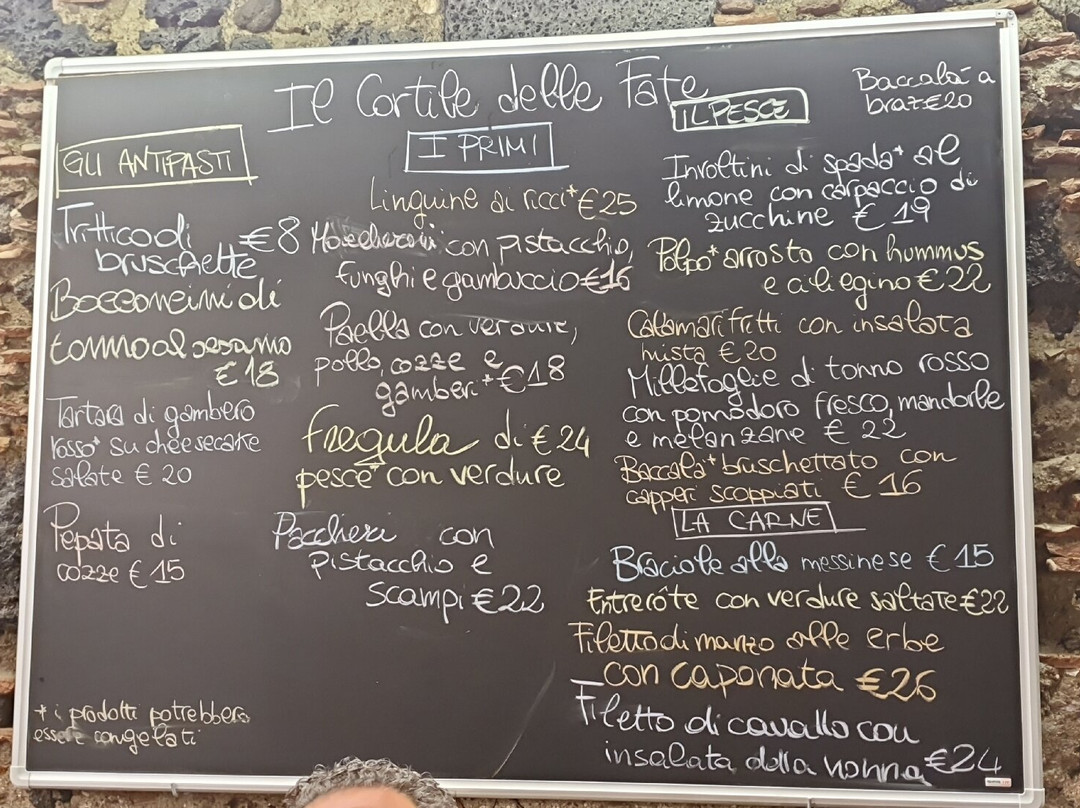 Il Cortile delle Fate
GLI ANTIPASTI
Trittico di €8
bruschette
Bocconcini di
tonno al sesamo
€18
Tartara di gambero
rosso* su cheesecake
salate € 20
Pepata di
cozze € 15
* i prodotti potrebbero
essere congelati
I PRIMI
Linguine ai ricci* €25
con pistacchio,
funghi e gambuccio €16
Paella con verdure,
pollo, cozze e
gamberi * €18
Fregula di € 24
pesce* con verdure
Paccheri con
pistacchio e
scampi €22
IL PESCE
Baccalà a
braz €20
Involtini di spada* al
limone con carpaccio di
zucchine € 19
Polpo* arrosto con hummus
e ciliegino €22
Calamari fritti con insalata
mista € 20
Millefoglie di tonno rosso
con pomodoro fresco, mandorle
e melanzane € 22
Baccalà* bruschettato con
capperi scoppiati € 16
LA CARNE
Braciole alla messinese € 15
Entrerôte con verdure saltate €22
Filetto di manzo alle erbe
con caponata €26
Filetto di cavallo con
insalata della nonna €24